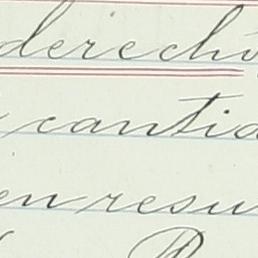 derecho
cantid
en resu